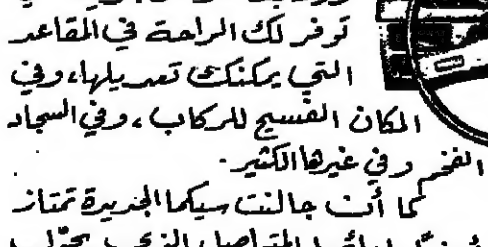 توفر لك الراحة في المقاعد
التي يمكنك تعديلها، وفي
المكان الفسيح للركاب، وفي السجاد
الفخم وفي غيرها الكثير.
كما أن جالنت سيكما الجديدة تمتاز
المتواصل الذي